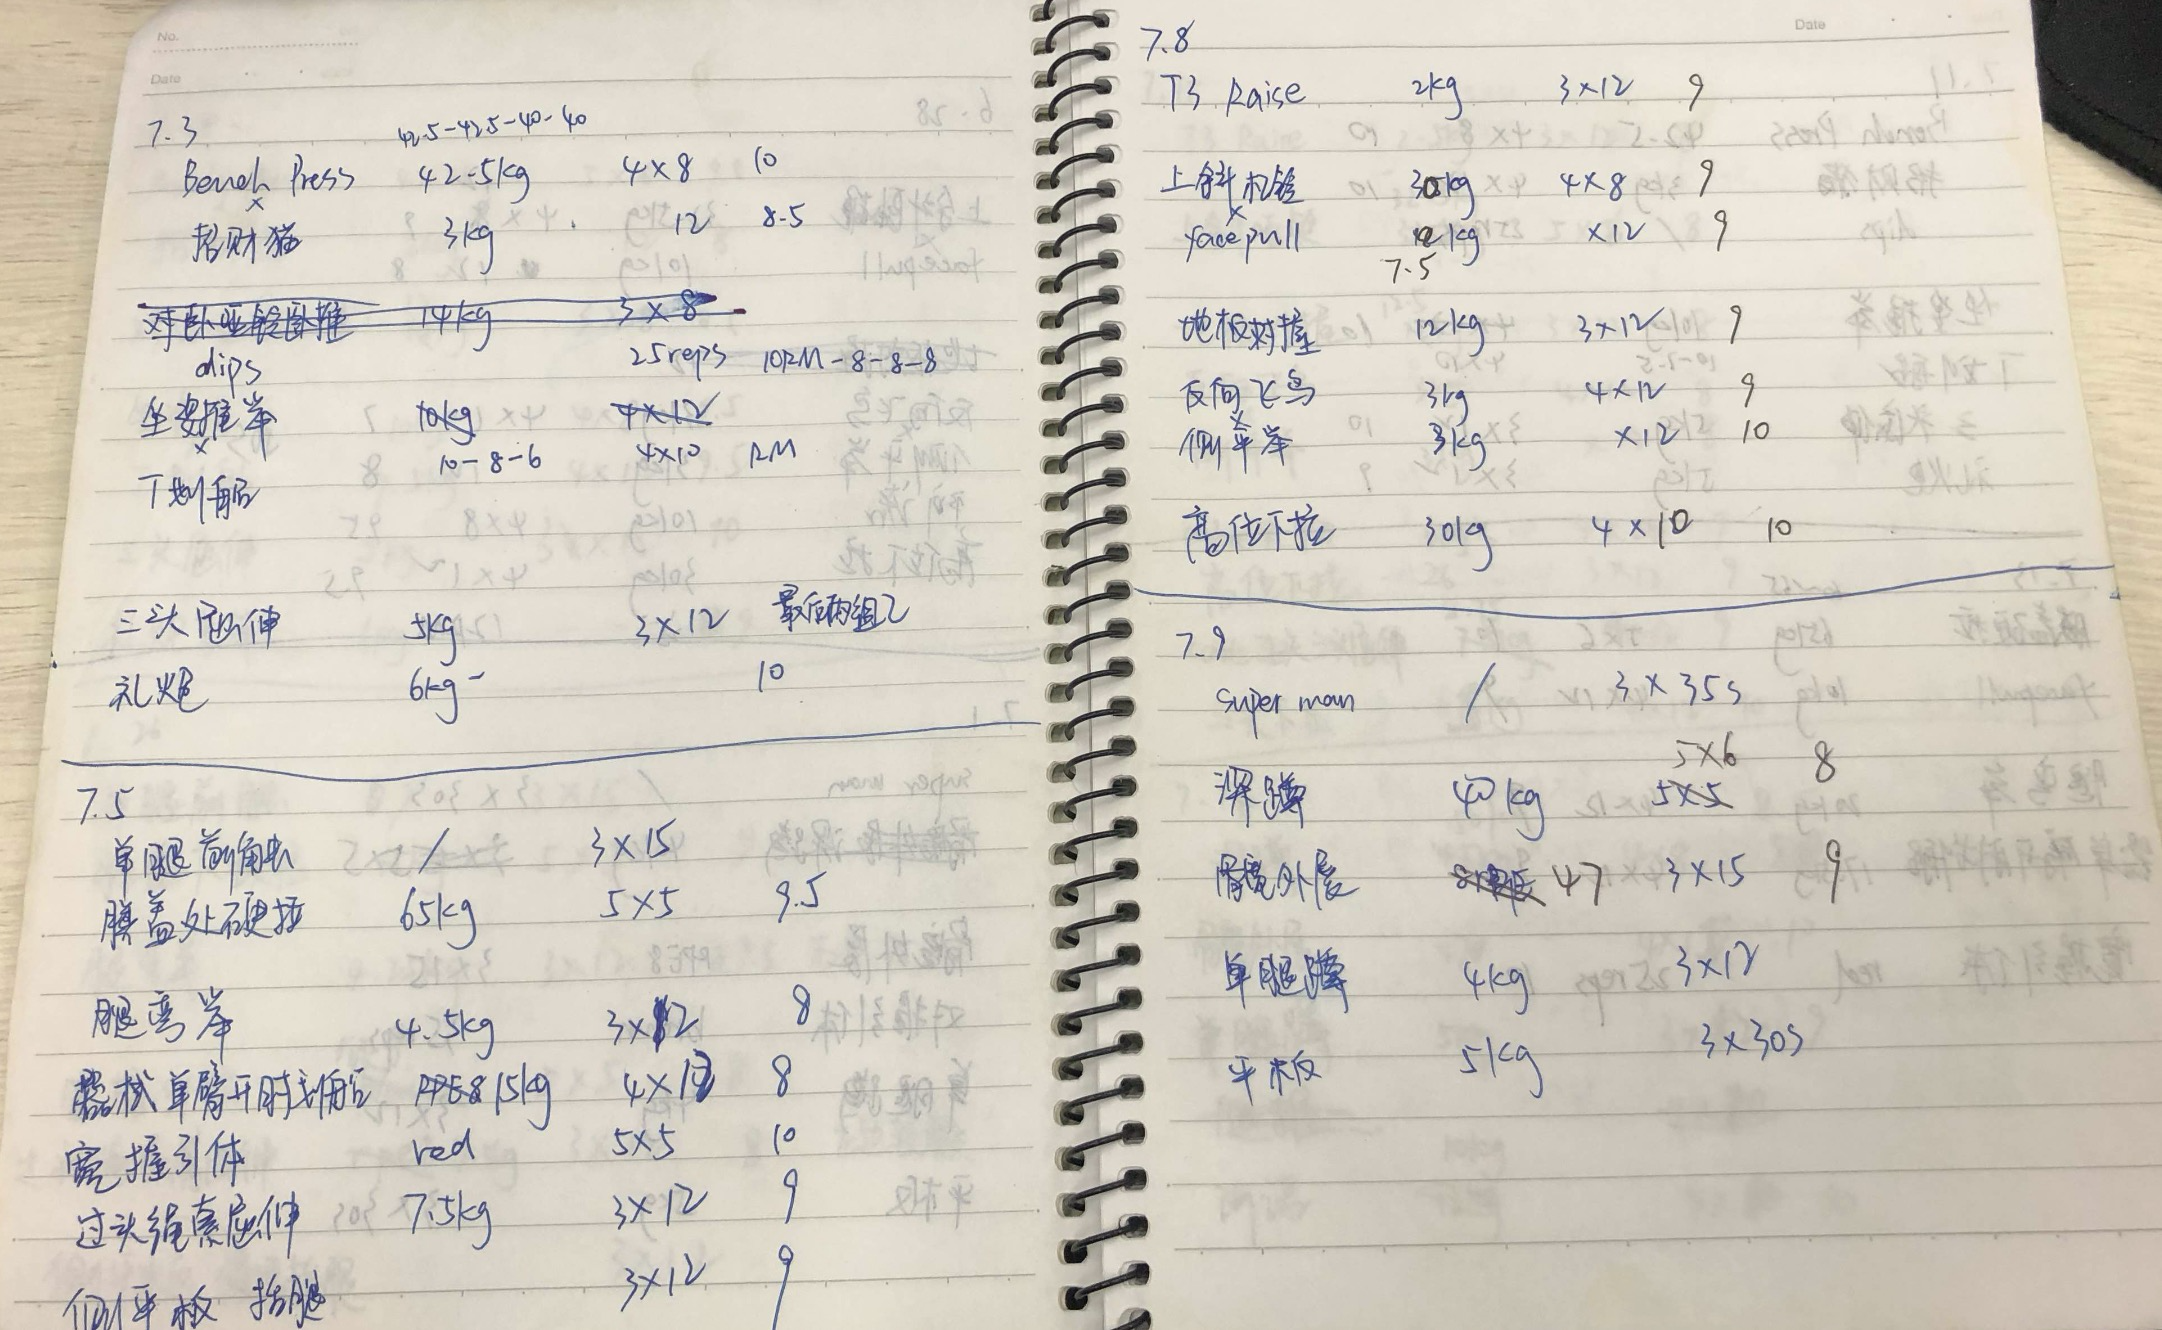 No.
Date
7.3 42.5-42.5-40-40
Bench Press 42.5kg 4×8 10
×
招财猫 3kg 12 8.5
对卧哑铃卧推 14kg 3×8
dips 25reps 10RM-8-8-8
坐姿推举 10kg 4×12
×
10-8-6 4×10 RM
T划船
三头屈伸 5kg 3×12 最后两组乙
礼炮 6kg 10
7.5
单腿前角 / 3×15
膝盖处硬拉 65kg 5×5 9.5
腿弯举 4.5kg 3×12 8
器械单臂开肘划船 RPE8 15kg 4×12 8
宽握引体 red 5×5 10
过头绳索屈伸 7.5kg 3×12 9
侧平板 抬腿 3×12 9
Date
7.8
T3 Raise 2kg 3×12 9
上斜杠铃 30kg 4×8 9
×
facepull kg ×12 9
7.5
地板对握 12kg 3×12 9
反向飞鸟 3kg 4×12 9
×
侧平举 3kg ×12 10
高位下拉 30kg 4×10 10
7.9
super man / 3×35s
5×6 8
深蹲 40kg 5×5
髋外展 47 3×15 9
单腿蹲 4kg 3×12
平板 5kg 3×30s